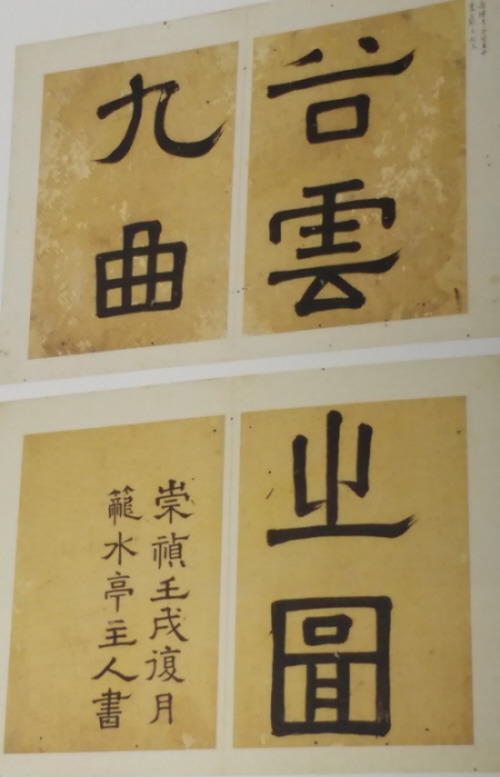 谷雲
九曲
之圖
崇禎壬戌復月
籠水亭主人書